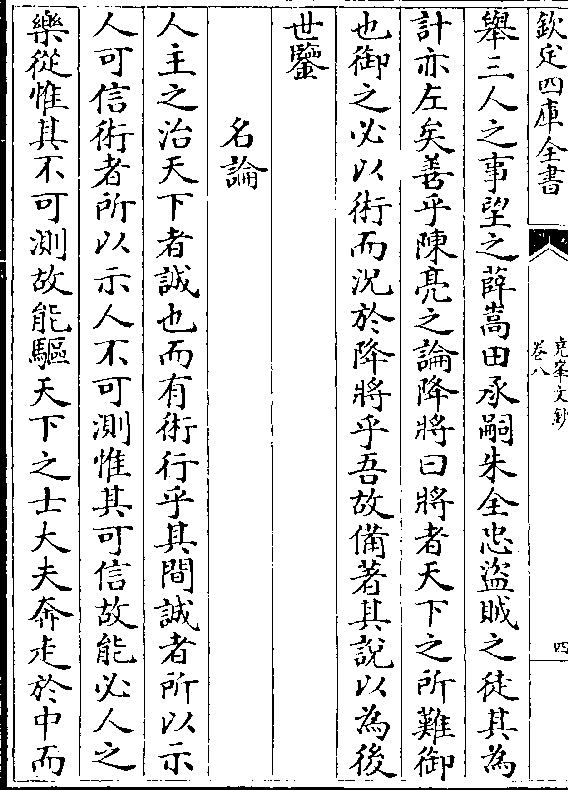 欽定四庫全書
堯峯文鈔
卷八
四
舉三人之事望之薛嵩田承嗣朱全忠盜賊之徒其為
計亦左矣善乎陳亮之論降將曰將者天下之所難御
也御之必以術而況於降將乎吾故備著其說以為後
世鑒
名論
人主之治天下者誠也而有術行乎其間誠者所以示
人可信術者所以示人不可測惟其可信故能必人之
樂從惟其不可測故能驅天下之士大夫奔走於中而